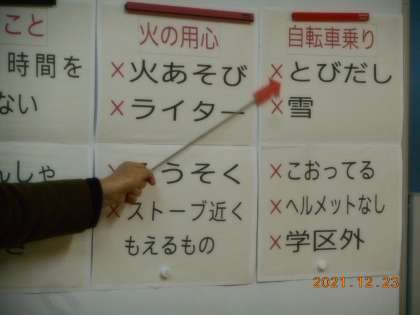 こと
時間を
ない
んしゃ
火の用心
×火あそび
×ライター
うそく
×ストーブ近く
もえるもの
自転車乗り
×とびだし
×雪
×こおってる
×ヘルメットなし
×学区外
2021.12.23